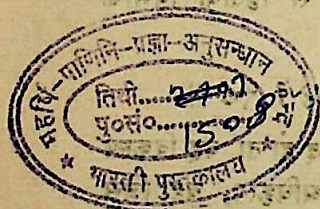 महर्षि-पाणिनि-प्रज्ञा-अनुसन्धान
तिथी.....
पु०सं०..... 1508
भारती पुस्तकालय